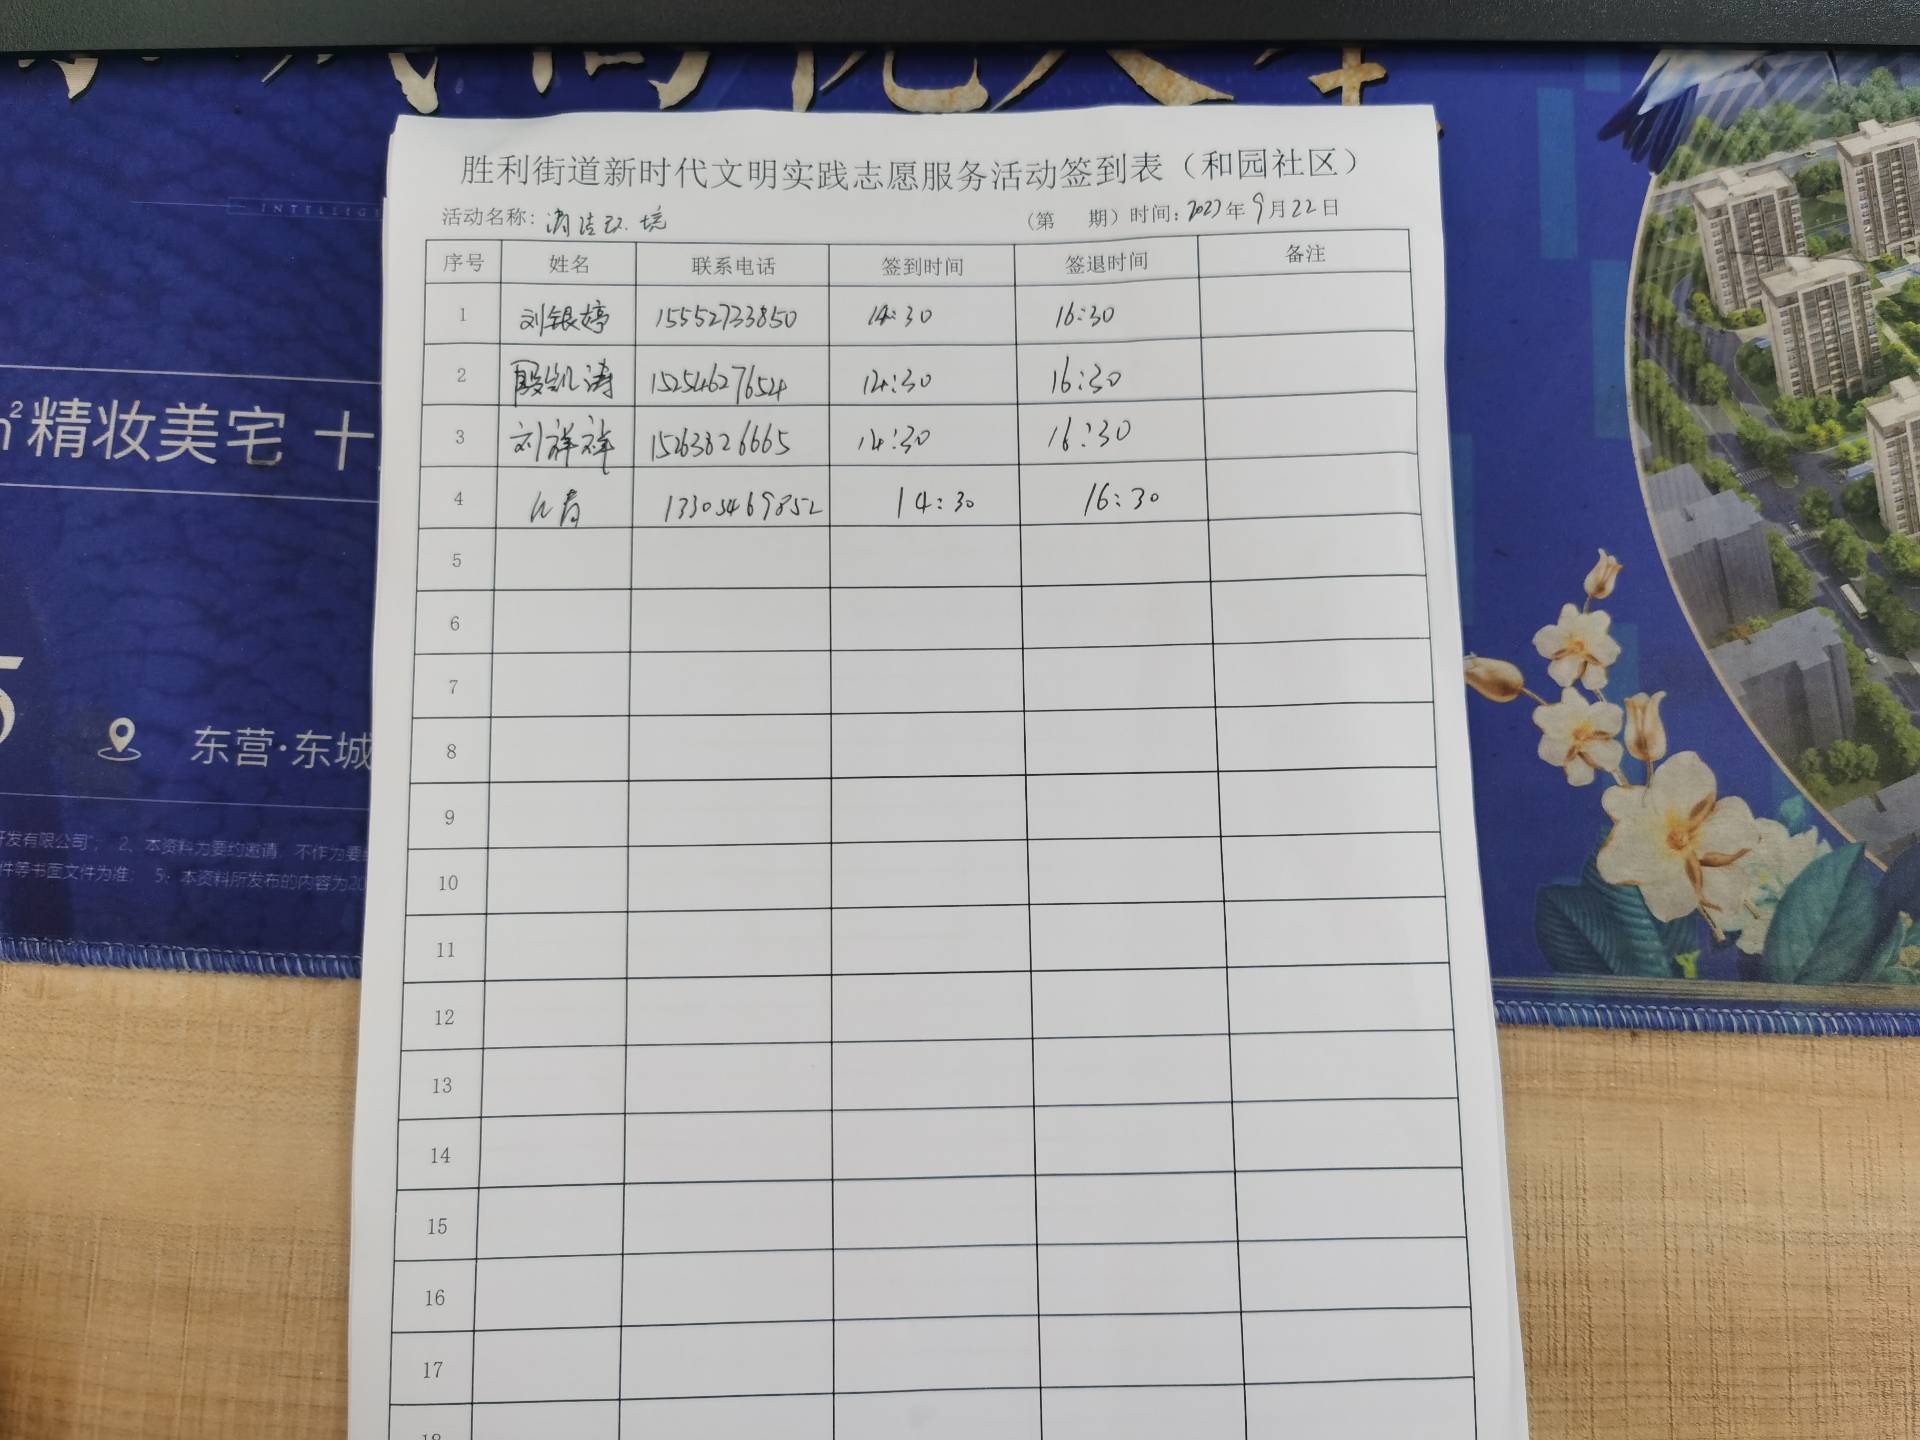 INTELLIG
㎡精妆美宅 十
东营·东城
开发有限公司"； 2、本资料为要约邀请，不作为要约
件等书面文件为准； 5、本资料所发布的内容为20
胜利街道新时代文明实践志愿服务活动签到表（和园社区）
活动名称：清洁环境 （第 期）时间：2023年9月22日
序号 姓名 联系电话 签到时间 签退时间 备注
1 刘银婷 15552733850 14:30 16:30
2 殷凯涛 15254627654 14:30 16:30
3 刘祥祥 15263826665 14:30 16:30
4 13305469852 14:30 16:30
5
6
7
8
9
10
11
12
13
14
15
16
17
18